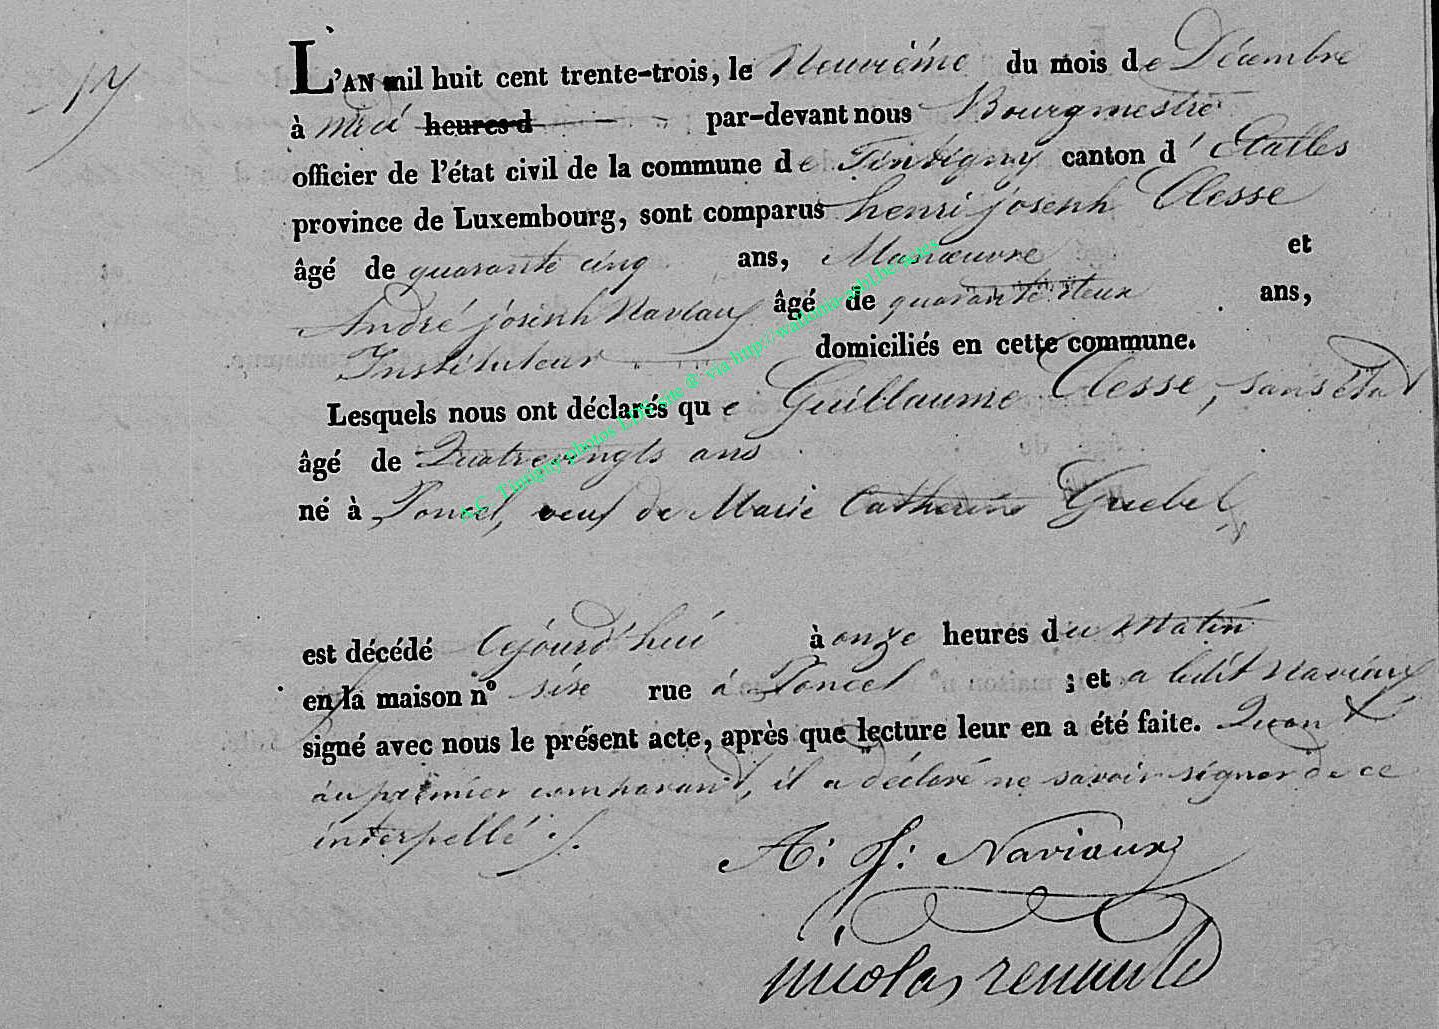 17
L'AN mil huit cent trente-trois, le Neuviéme du mois de Décembre
à midi heures d par-devant nous Bourgmestre
officier de l'état civil de la commune de Tintigny canton d'Etalles
province de Luxembourg, sont comparus henri joseph Clesse
âgé de quarante cinq ans, Manœuvre et
André joseph Naviaux âgé de quarante deux ans,
Instituteur domiciliés en cette commune.
Lesquels nous ont déclarés que Guillaume Clesse, sans état
âgé de Quatrevingts ans
né à Poncel, veuf de Marie Catherine Guebel
est décédé Cejourd'hui à onze heures du matin
en la maison n° sise rue à Poncel ; et a ledit Naviaux
signé avec nous le présent acte, après que lecture leur en a été faite. Quant
au premier comparant, il a déclaré ne savoir signer de ce
interpellé.
A: J: Naviaux
nicolas renauld
A.C. Tintigny photos LDS site © via http://wallonia-asbl.be/actes